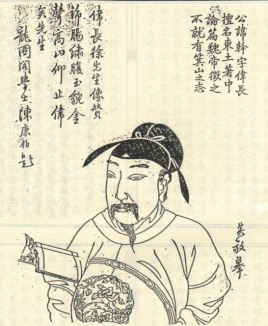 公諱幹字偉長
擅名東土著中
論篇魏帝徵之
不就有箕山之志
偉長徐先生像賛
錦腸繡腹玉貌金
聲高山仰止偉
矣先生
龍圖閣學士陳康伯題
敬摹